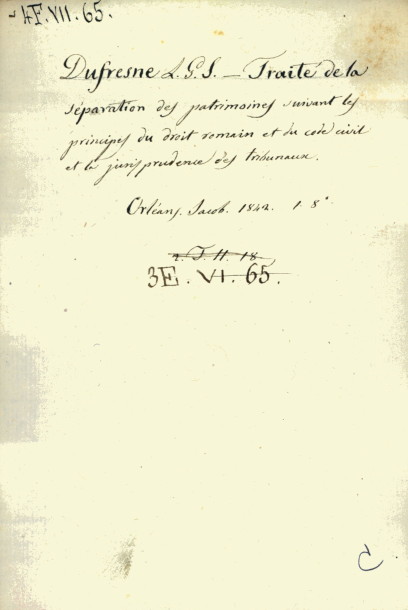 4F.VII.65.
Dufresne L.G.S. — Traité de la
séparation des patrimoines suivant les
principes du droit romain et du code civil
et la jurisprudence des tribunaux.
Orléans. Jacob. 1842. 1 8°
2. T. H. 18
3E.VI.65.
C